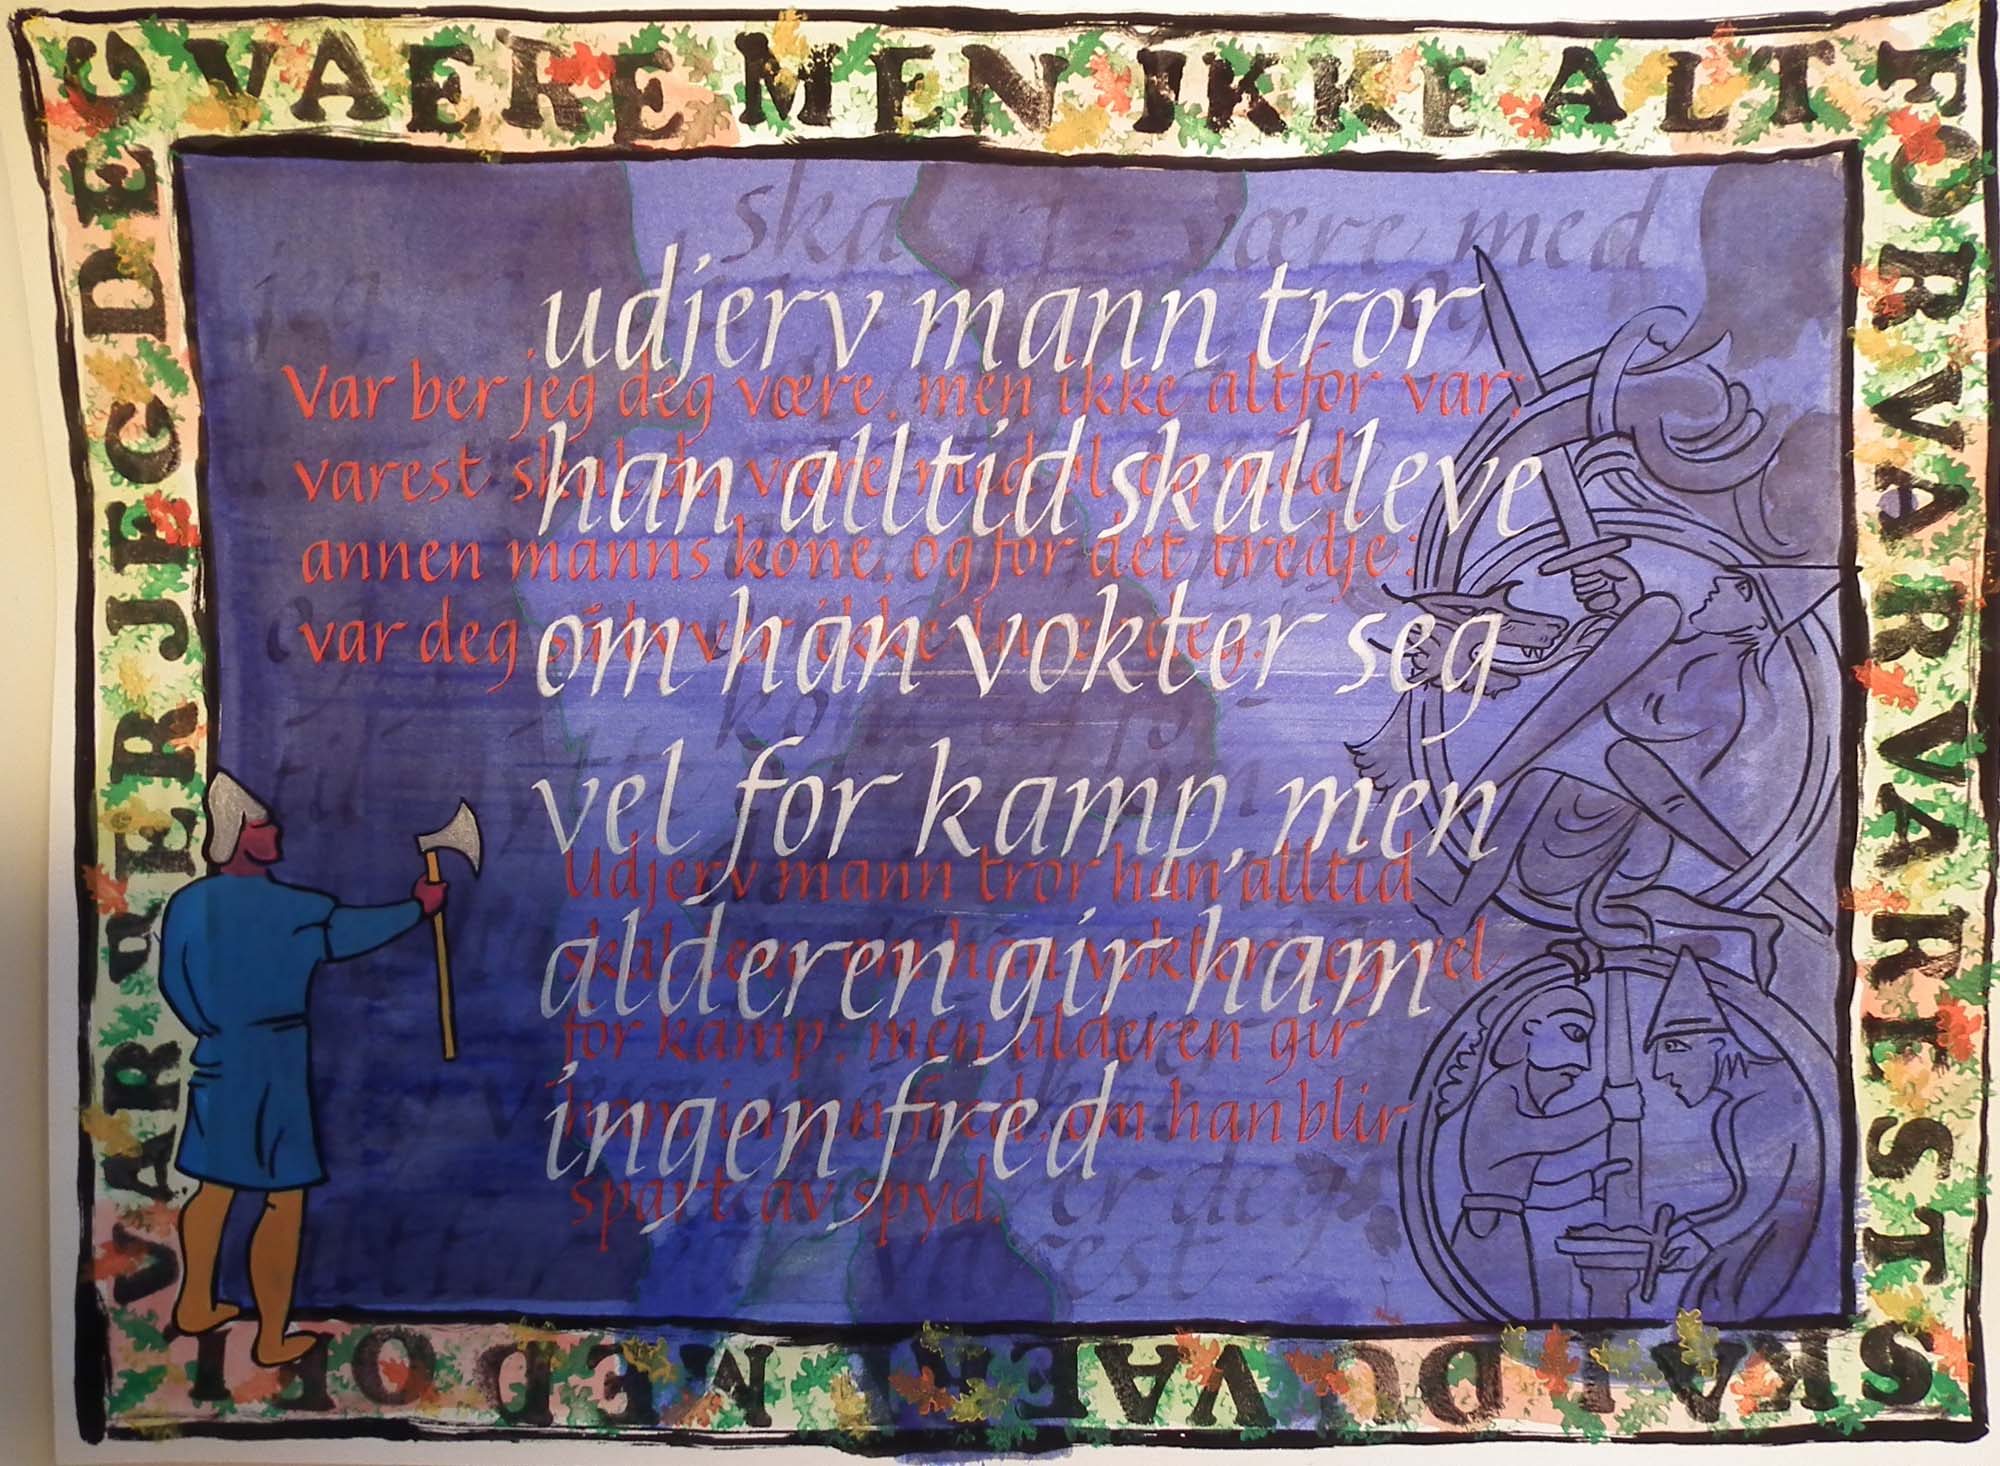 VAR BER JEG DEG
VAERE MEN IKKE ALT
FOR VAR VAREST
SKAL DU VAERE MED
ska være med
jeg og
udjerv mann tror
Var ber jeg deg være, men ikke altfor var;
han alltid skal leve
varest skal du være med øl og med
annen manns kone, og for det tredje:
om han vokter seg
var deg så ikke deg.
vel for kamp, men
Udjerv mann tror han alltid
alderen gir ham
skal leve om han vokter seg vel
for kamp; men alderen gir
ingen fred
ham ingen fred, om han blir
spart av spyd.
er deg
varest